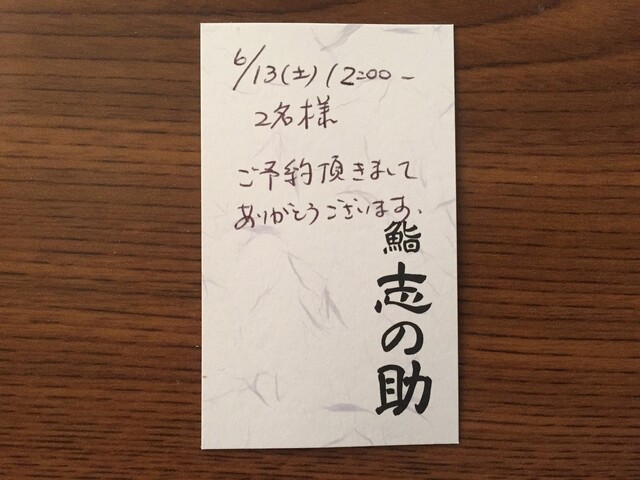 6/13(土) 12:00-
2名様
ご予約頂きまして
ありがとうございます、
鮨 志の助